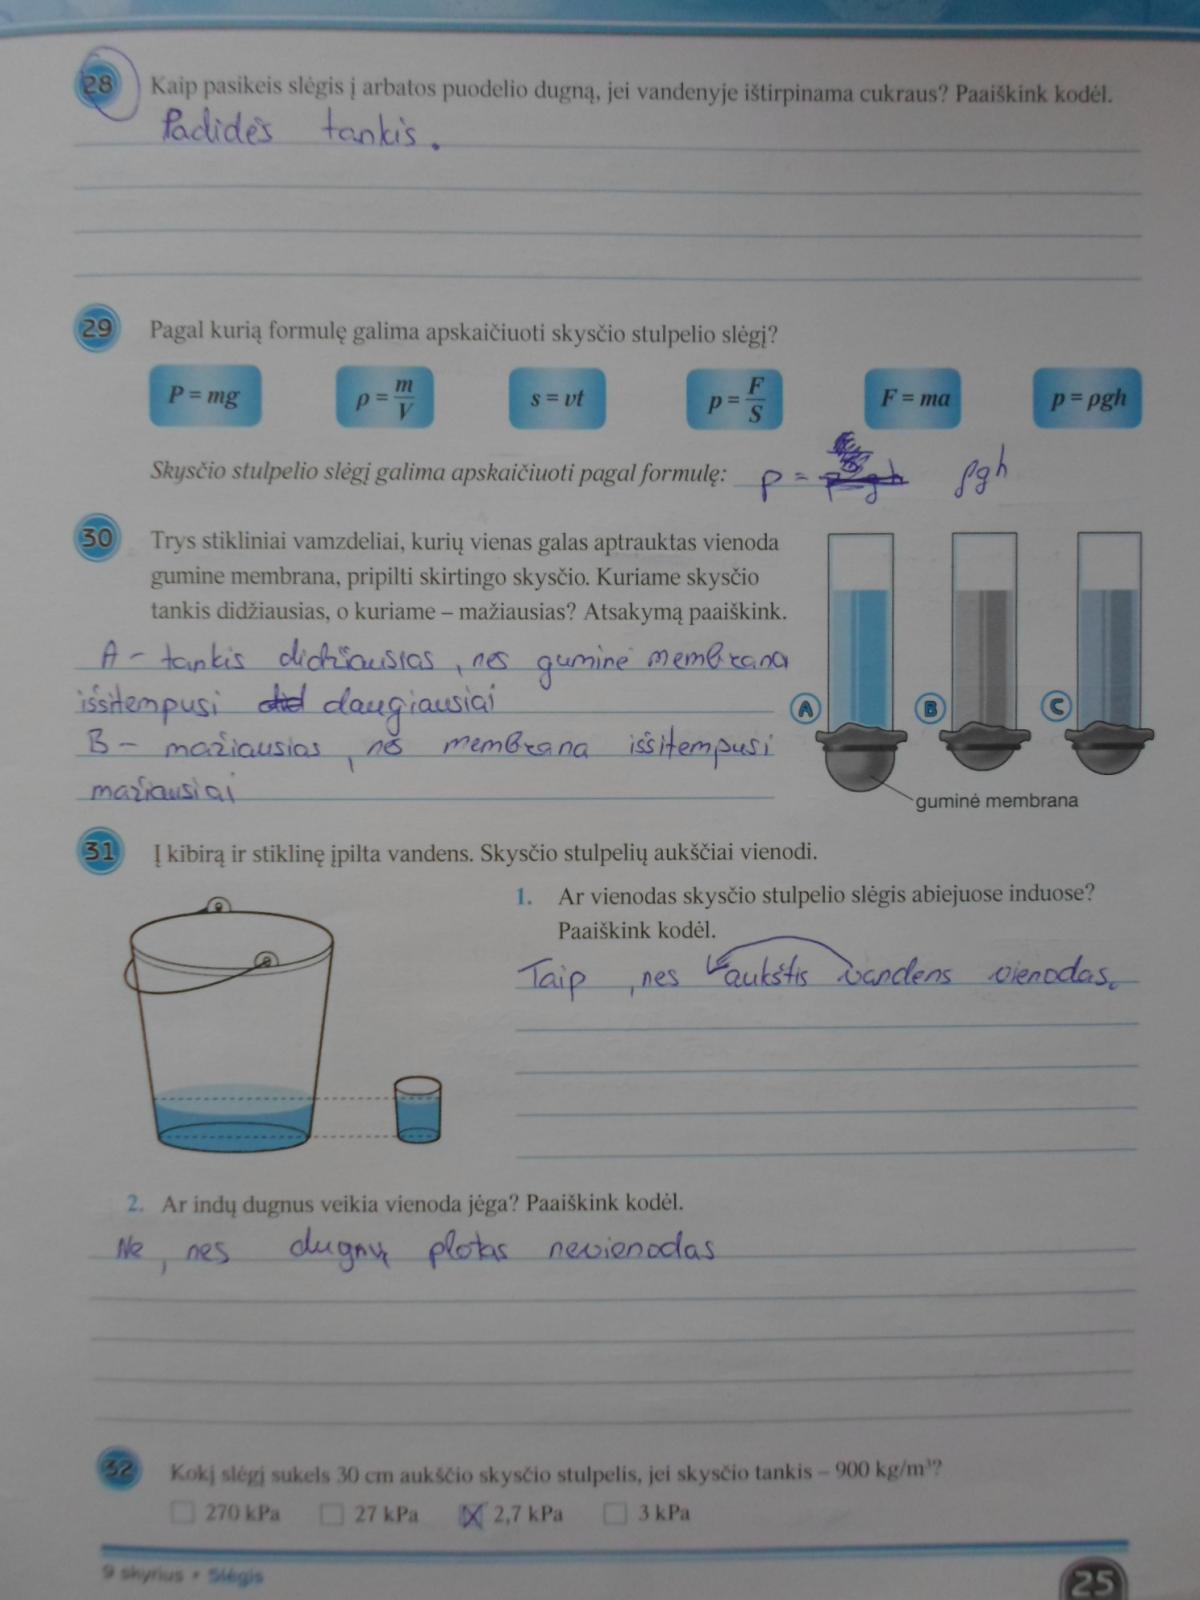 28 Kaip pasikeis slėgis į arbatos puodelio dugną, jei vandenyje ištirpinama cukraus? Paaiškink kodėl.
Padidės tankis.
29 Pagal kurią formulę galima apskaičiuoti skysčio stulpelio slėgį?
P = mg ρ = m/V s = vt p = F/S F = ma p = ρgh
Skysčio stulpelio slėgį galima apskaičiuoti pagal formulę: p = ρgh
30 Trys stikliniai vamzdeliai, kurių vienas galas aptrauktas vienoda
gumine membrana, pripilti skirtingo skysčio. Kuriame skysčio
tankis didžiausias, o kuriame – mažiausias? Atsakymą paaiškink.
A – tankis didžiausias, nes guminė membrana
išsitempusi daugiausiai
B – mažiausias, nes membrana išsitempusi
mažiausiai
A B C
guminė membrana
31 Į kibirą ir stiklinę įpilta vandens. Skysčio stulpelių aukščiai vienodi.
1. Ar vienodas skysčio stulpelio slėgis abiejuose induose?
Paaiškink kodėl.
Taip, nes aukštis vandens vienodas.
2. Ar indų dugnus veikia vienoda jėga? Paaiškink kodėl.
Ne, nes dugnų plotas nevienodas
32 Kokį slėgį sukels 30 cm aukščio skysčio stulpelis, jei skysčio tankis – 900 kg/m³?
270 kPa 27 kPa 2,7 kPa 3 kPa
9 skyrius • Slėgis
25